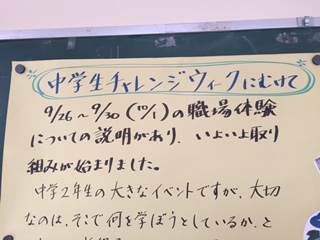 中学生チャレンジウィークにむけて
9/26～9/30(10/1)の職場体験
についての説明があり、いよいよ取り
組みが始まりました。
中学2年生の大きなイベントですが、大切
なのは、そこで何を学ぼうとしているか、と